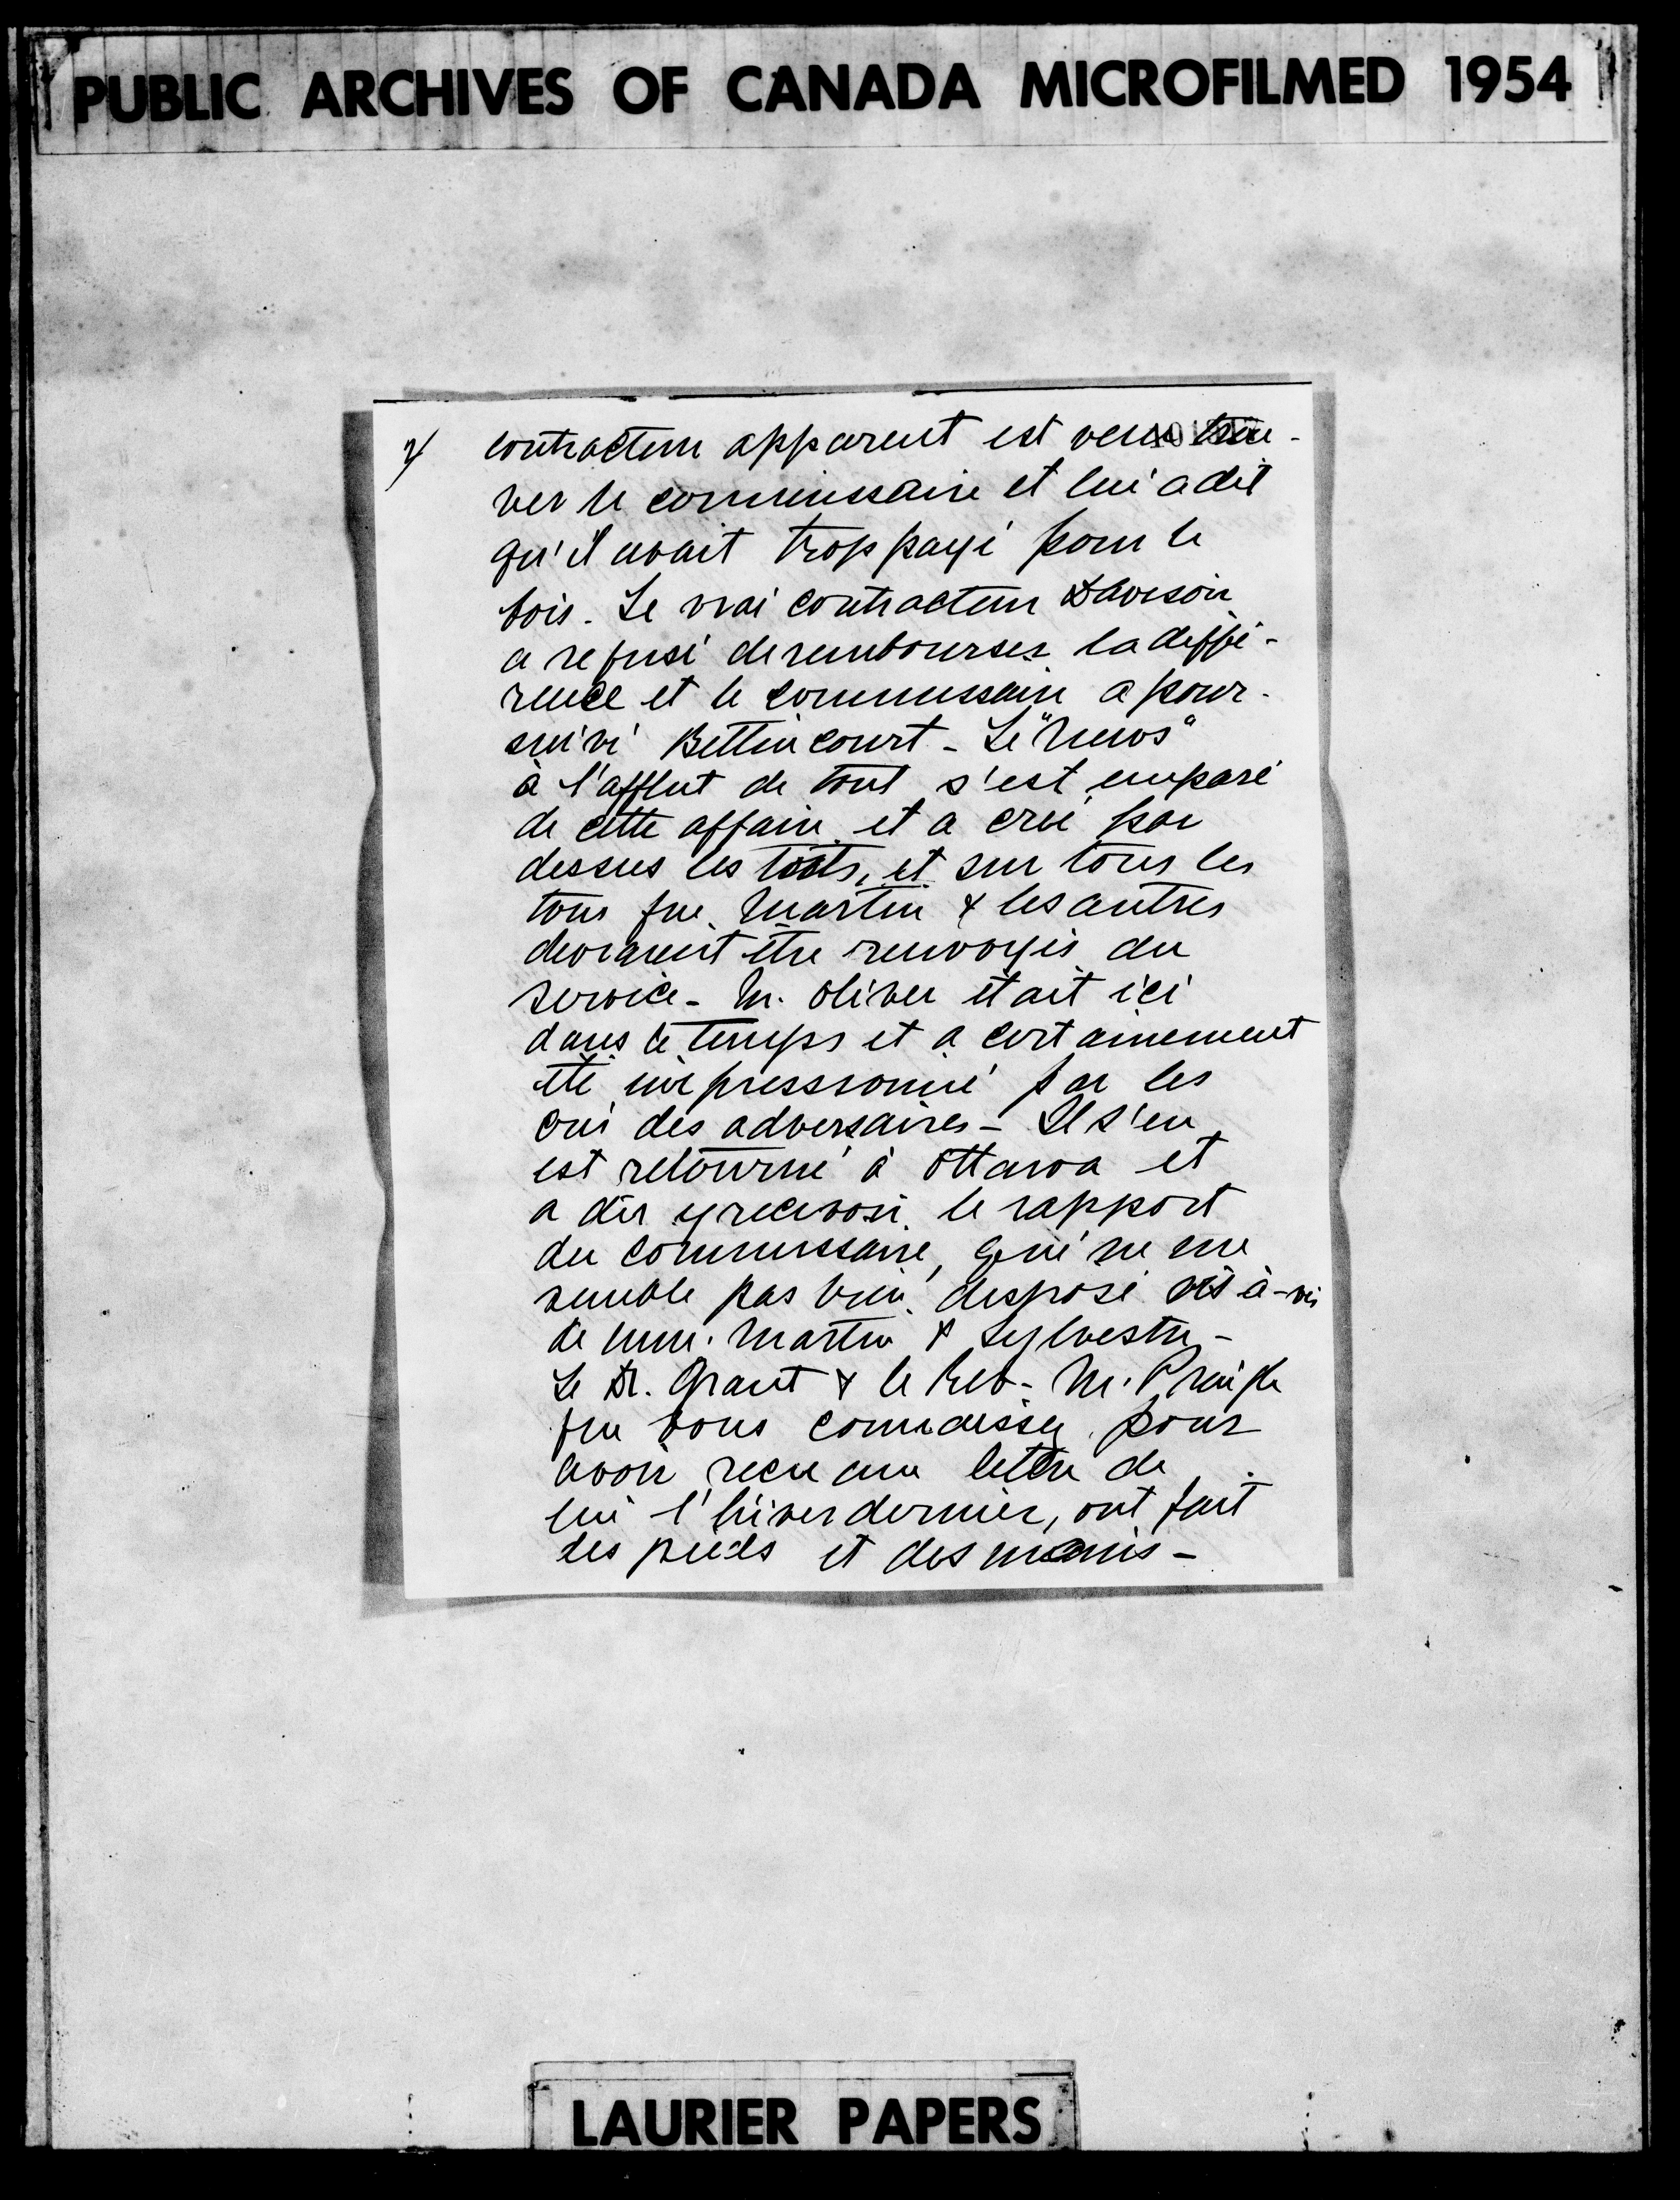 PUBLIC ARCHIVES OF CANADA MICROFILMED 1954
contracteur apparent est venu trou-
ver le commissaire et lui a dit
qu'il avait trop payé pour le
bois. Le vrai contracteur Davison
a refusé de rembourser la diffé-
rence et le commissaire a pour-
suivi Bettincourt - Le "News"
à l'afflut de tout s'est emparé
de cette affaire et a crié par
dessus les toits, et sur tous les
tons que Martin & les autres
devraient être renvoyés du
service - M. Oliver était ici
dans le temps et a certainement
été impressionné par les
cris des adversaires - Il s'en
est retourné à Ottawa et
a dû y recevoir le rapport
du commissaire, qui ne me
semble pas bien disposé vis-à-vis
de MM. Martin & Sylvestre -
Le Dr. Grant & le Rev. M. Pringle
que vous connaissez pour
avoir reçu une lettre de
lui l'hiver dernier, ont fait
des pieds et des mains -
LAURIER PAPERS